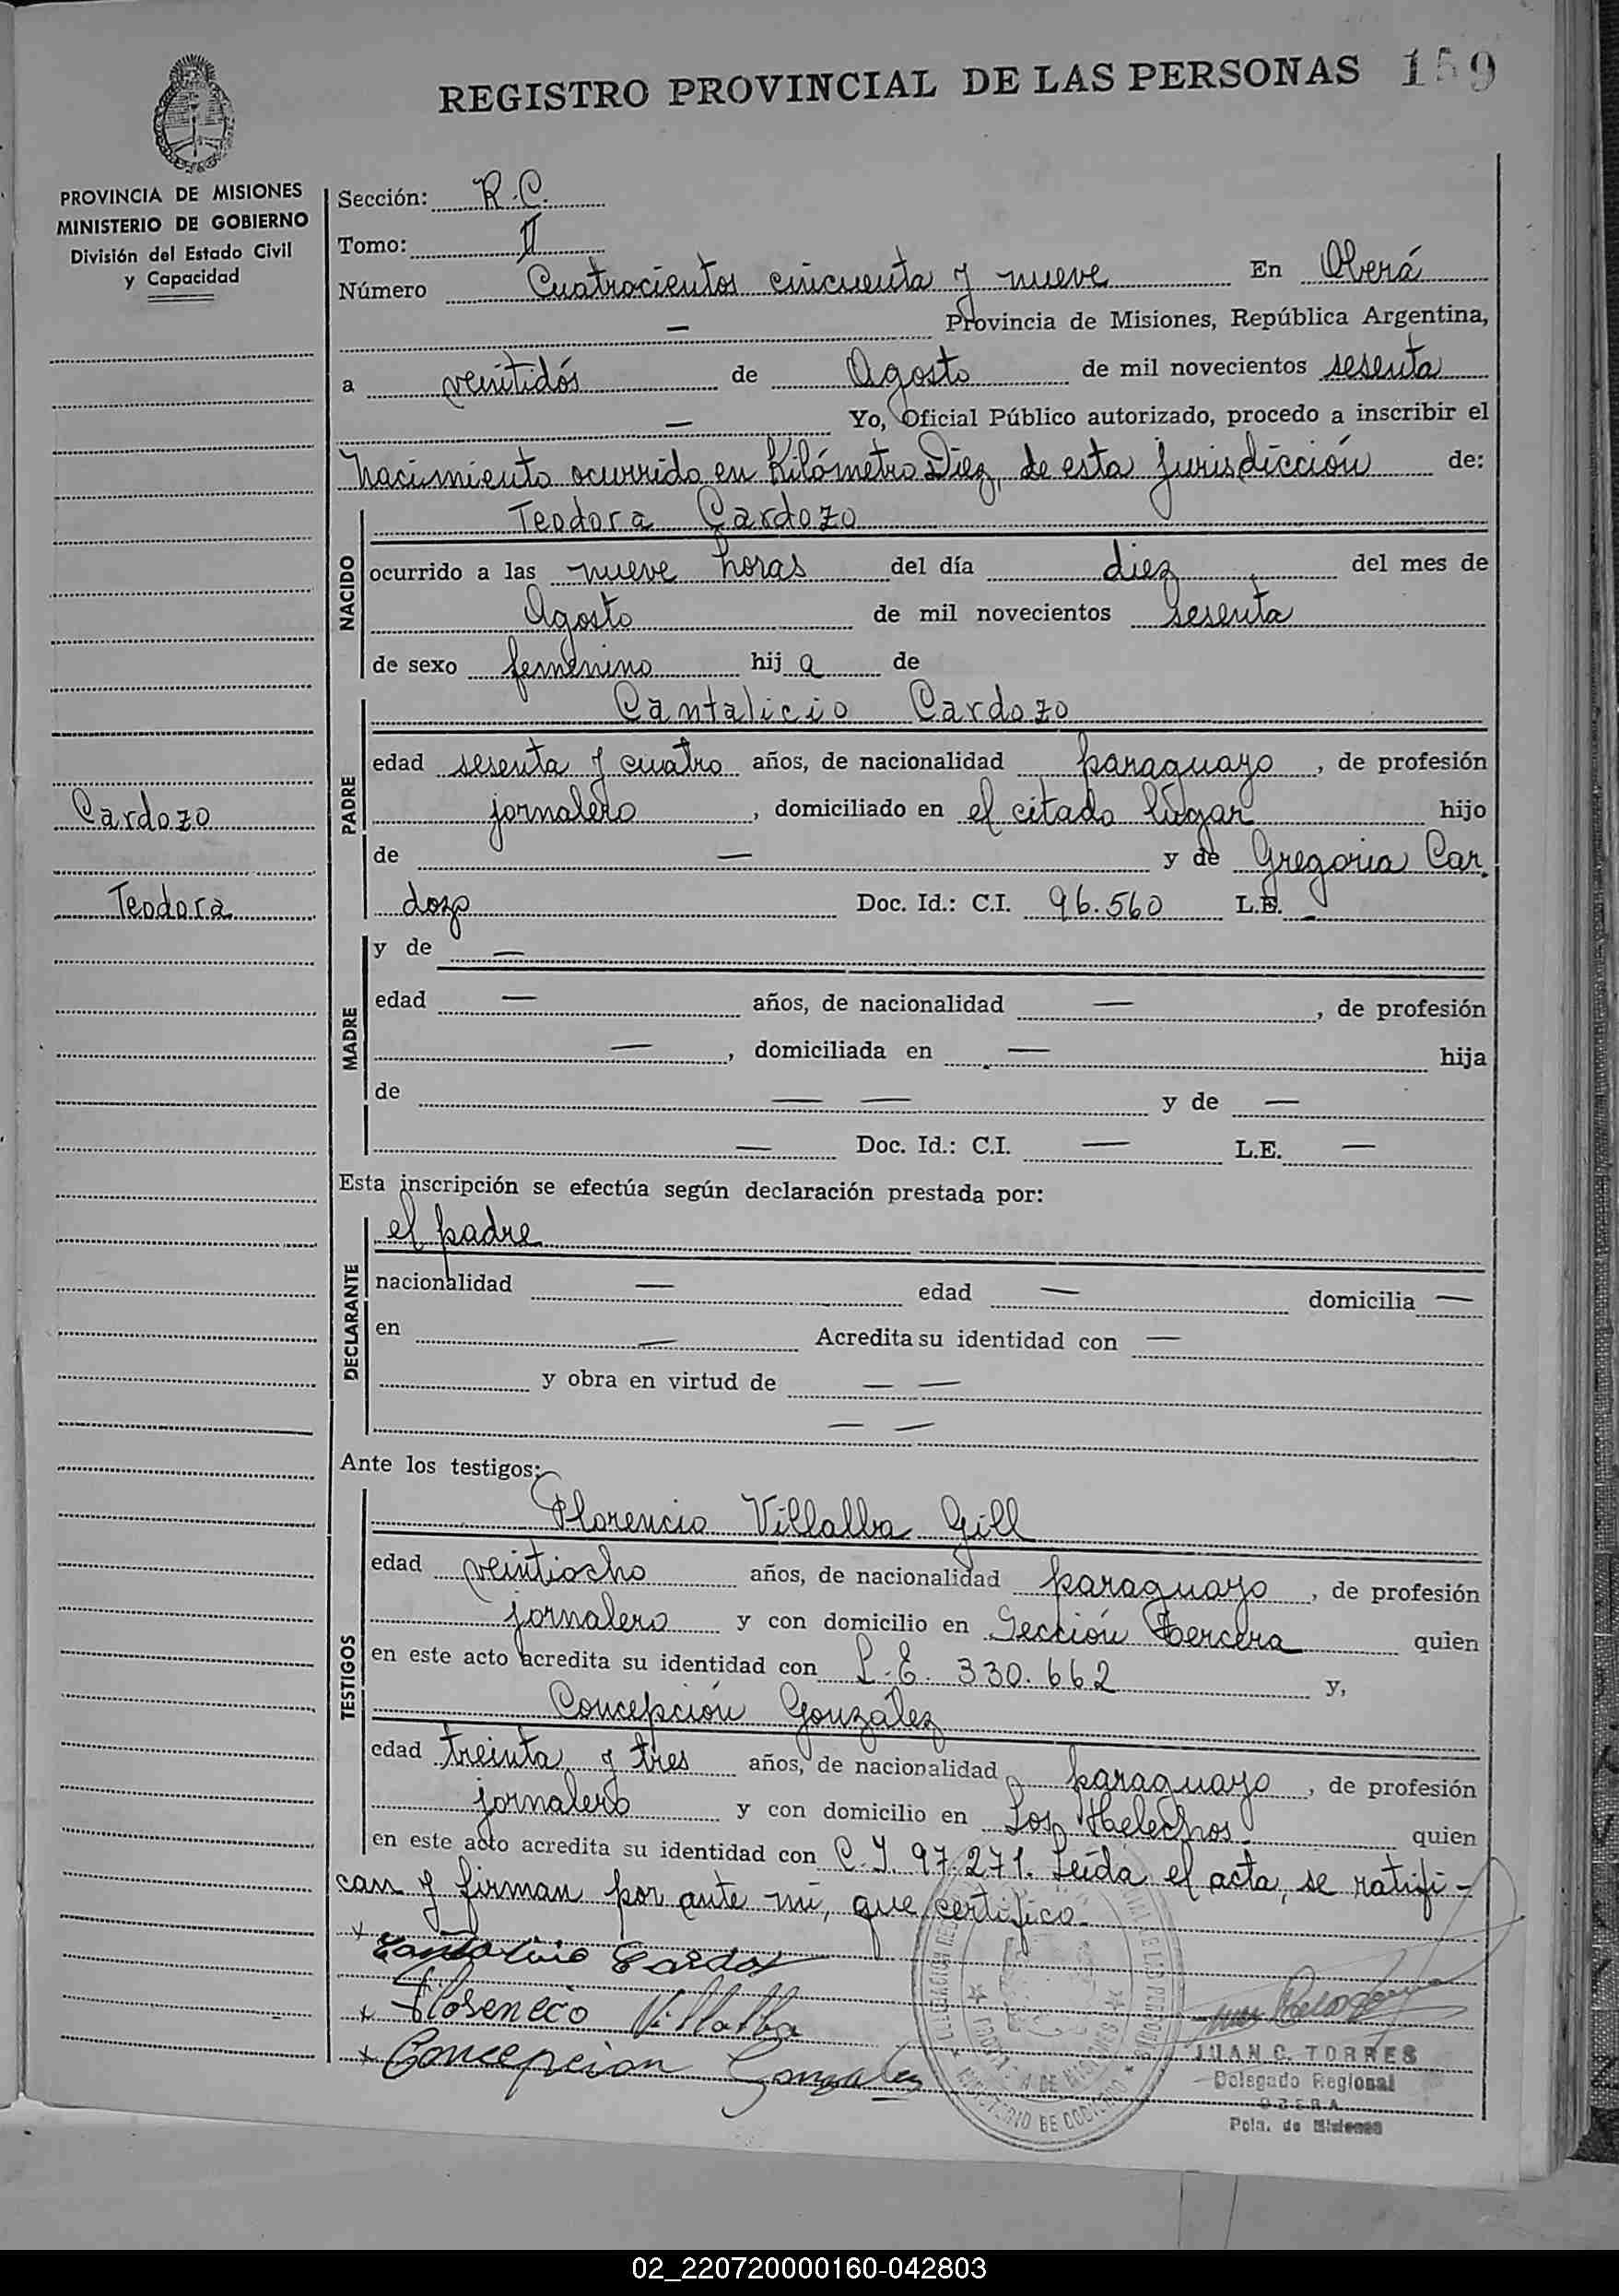 REGISTRO PROVINCIAL DE LAS PERSONAS 159
PROVINCIA DE MISIONES
MINISTERIO DE GOBIERNO
División del Estado Civil
y Capacidad
Cardozo
Teodora
Sección: R.C.
Tomo: II
Número Cuatrocientos cincuenta y nueve En Oberá
— Provincia de Misiones, República Argentina,
a veintidós de Agosto de mil novecientos sesenta
— Yo, Oficial Público autorizado, procedo a inscribir el
nacimiento ocurrido en Kilómetro Diez, de esta jurisdicción de:
NACIDO
Teodora Cardozo
ocurrido a las nueve horas del día diez del mes de
Agosto de mil novecientos sesenta
de sexo femenino hija de
PADRE
Cantalicio Cardozo
edad sesenta y cuatro años, de nacionalidad paraguayo, de profesión
jornalero, domiciliado en el citado lugar hijo
de — y de Gregoria Car
dozo Doc. Id.: C.I. 96.560 L.E. —
MADRE
y de —
edad — años, de nacionalidad —, de profesión
—, domiciliada en — hija
de — — y de —
— Doc. Id.: C.I. — L.E. —
Esta inscripción se efectúa según declaración prestada por:
DECLARANTE
el padre
nacionalidad — edad — domicilia —
en — Acredita su identidad con —
y obra en virtud de — —
— —
Ante los testigos:
TESTIGOS
Florencio Villalba Gill
edad veintiocho años, de nacionalidad paraguayo, de profesión
jornalero y con domicilio en Sección Tercera quien
en este acto acredita su identidad con L.E. 330.662 y,
Concepción González
edad treinta y tres años, de nacionalidad paraguayo, de profesión
jornalero y con domicilio en Los Helechos. quien
en este acto acredita su identidad con C.I. 97.271. Leída el acta, se ratifi-
can y firman por ante mí, que certifico.
x Cantalicio Cardoz
x Florenecio Villalba
x Concepcion Gonzalez
JUAN C. TORRES
Delegado Regional
OBERA
Pcia. de Misiones
MINISTERIO DE GOBIERNO
PROVINCIA DE MISIONES
02_220720000160-042803